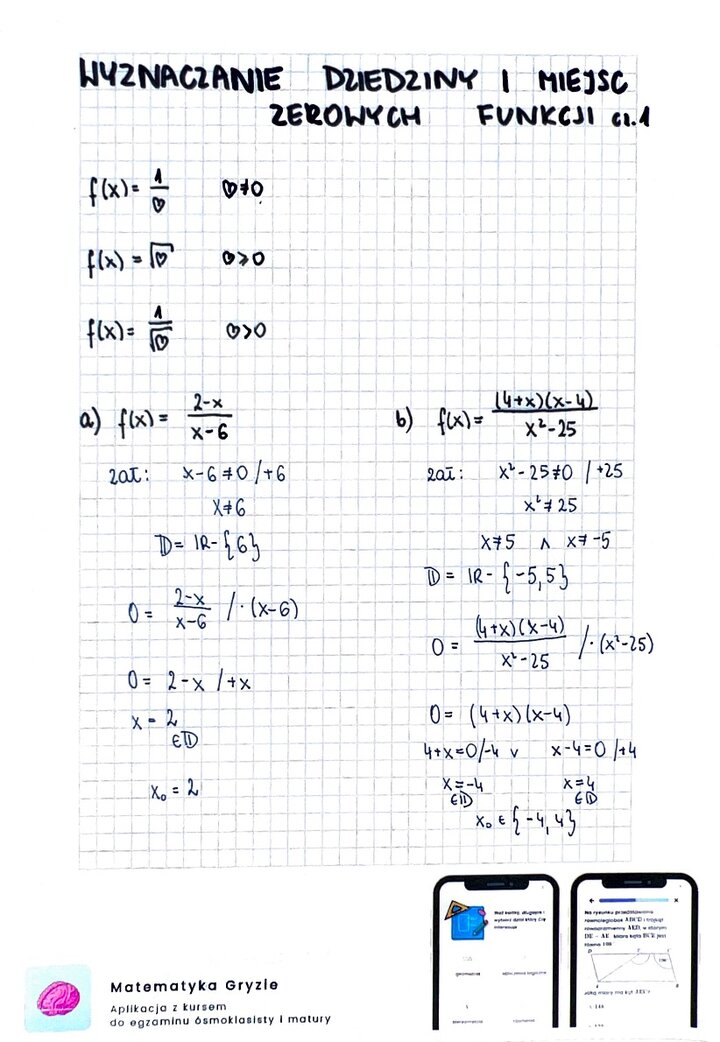 WYZNACZANIE DZIEDZINY I MIEJSC
ZEROWYCH FUNKCJI cz.1
f(x) = 1/♡ ♡≠0
f(x) = √♡ ♡⩾0
f(x) = 1/√♡ ♡>0
a) f(x) = (2-x)/(x-6)
zał: x-6≠0 /+6
x≠6
D = IR-{6}
0 = (2-x)/(x-6) /·(x-6)
0 = 2-x /+x
x = 2
∈D
x₀ = 2
b) f(x) = ((4+x)(x-4))/(x²-25)
zał: x²-25≠0 /+25
x²≠25
x≠5 ∧ x≠-5
D = IR-{-5,5}
0 = ((4+x)(x-4))/(x²-25) /·(x²-25)
0 = (4+x)(x-4)
4+x=0/-4 ∨ x-4=0 /+4
x=-4 x=4
∈D ∈D
x₀ ∈ {-4,4}
Matematyka Gryzie
Aplikacja z kursem
do egzaminu ósmoklasisty i matury
Na rysunku przedstawiono
równoległobok ABCD i trójkąt
równoramienny AED, w którym
DE = AE